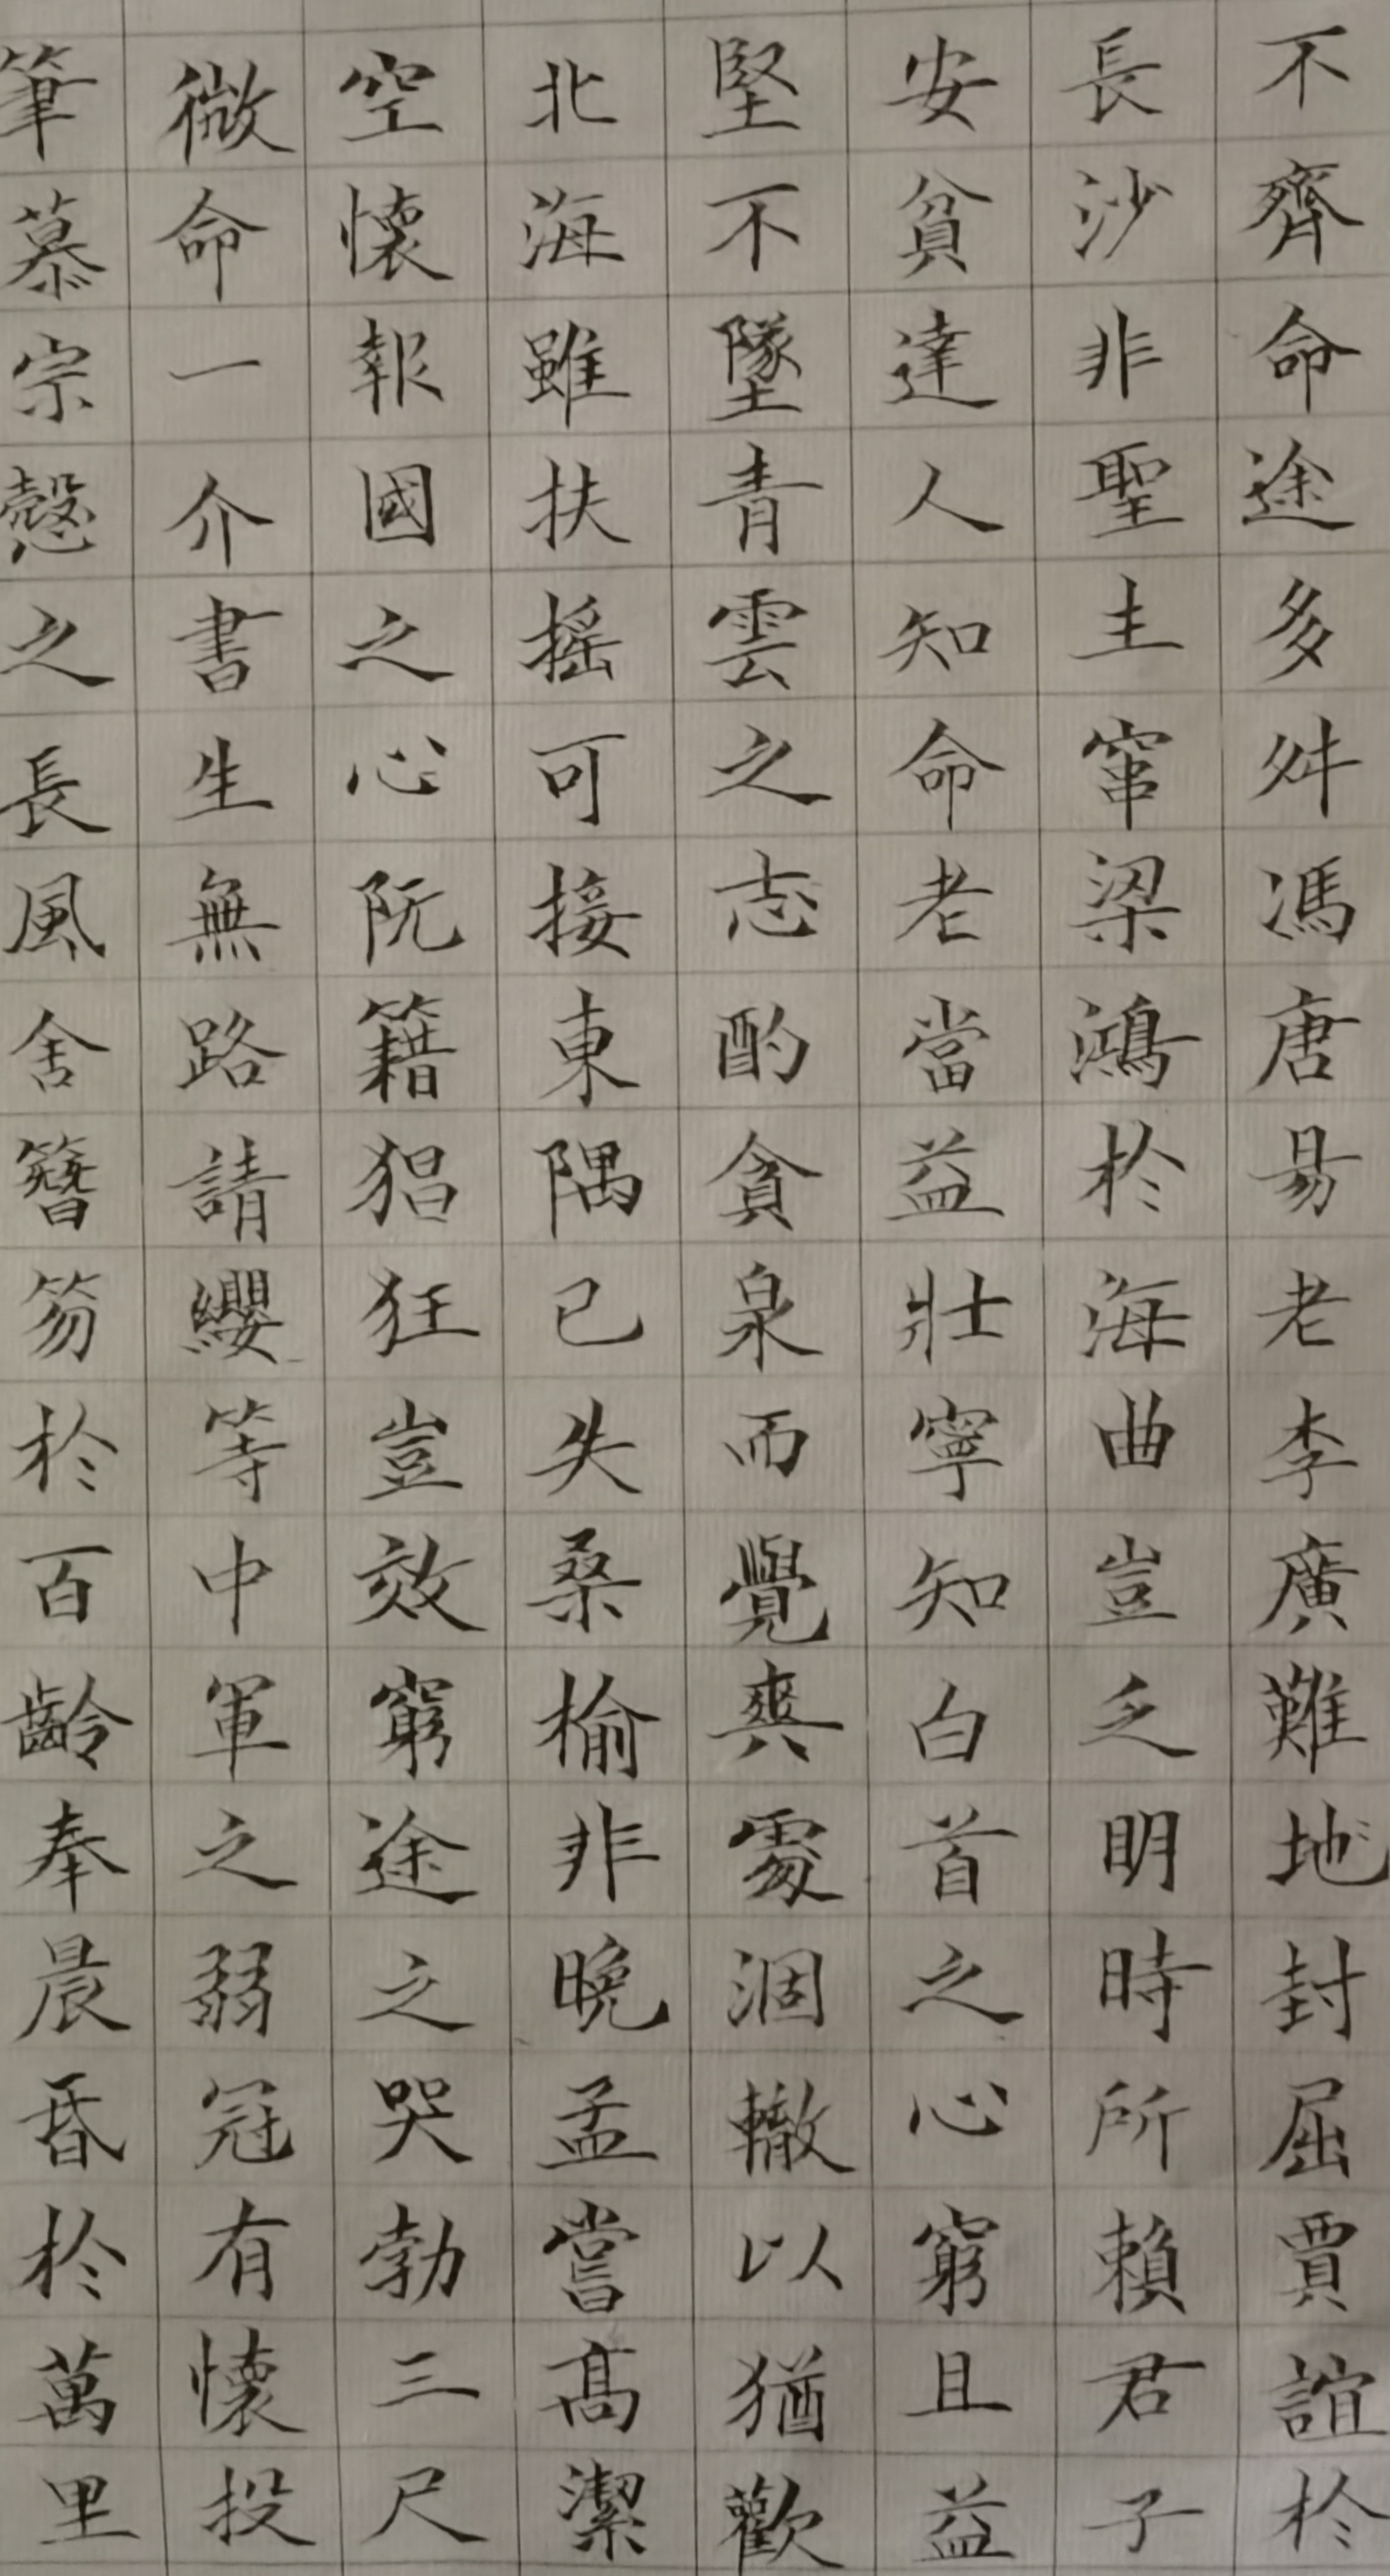 不齊命途多舛馮唐易老李廣難地封屈賈誼於
長沙非聖主窜梁鴻於海曲豈乏明時所賴君子
安貧達人知命老當益壯寧知白首之心窮且益
堅不墜青雲之志酌貪泉而覺爽處涸轍以猶歡
北海雖扶摇可接東隅已失桑榆非晚孟嘗髙潔
空懷報國之心阮籍猖狂豈效窮途之哭勃三尺
微命一介書生無路請纓等中軍之弱冠有懷投
筆慕宗慤之長風舍簪笏於百齡奉晨昏於萬里